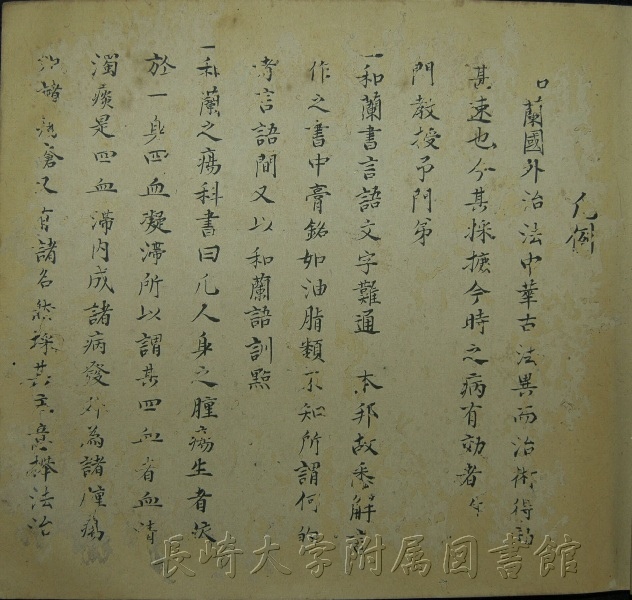 凡例
蘭國外治法中華古法異而治術得効
甚速也分其採摭今時之病有効者
門教授予門弟
一和蘭書言語文字難通 本邦故悉解
作之書中膏銘如油脂類不知所謂何
考言語間又以和蘭語訓點
一和蘭之瘍科書曰凡人身之腫瘍生者
於一身四血凝滞所以謂其四血者血清
濁痰是四血滞内成諸病發外為諸腫瘍
諸瘡又有諸名然採其 意 法治
長崎大学附属図書館